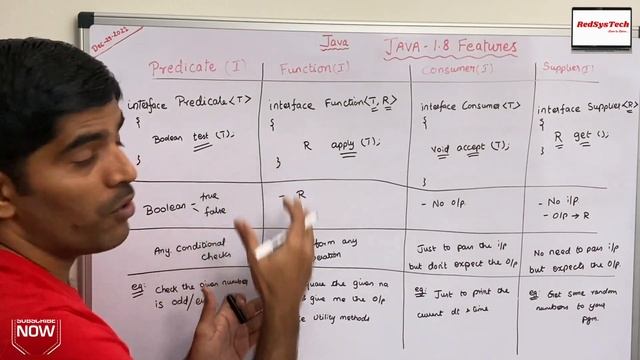 Dec-23-2021
Java
JAVA - 1.8 Features
RedSysTech
Predicate (I)
Function (I)
Consumer (I)
Supplier (I)
interface Predicate<T>
{
Boolean test (T);
}
interface Function<T, R>
{
R apply (T);
}
interface Consumer<T>
{
void accept (T);
}
interface Supplier<R>
{
R get ();
}
Boolean - true
false
- R
- No o/p.
- No i/p
- o/p → R
Any Conditional
checks
form any
Just to pass the i/p
but don't expect the o/p.
No need to pass i/p
but expects the o/p.
eg: Check the given number
is odd/
the given no
give me the o/p
Utility methods
eg: Just to print the
current dt & time
eg: Get some random
numbers to your
pgm.
SUBSCRIBE
NOW